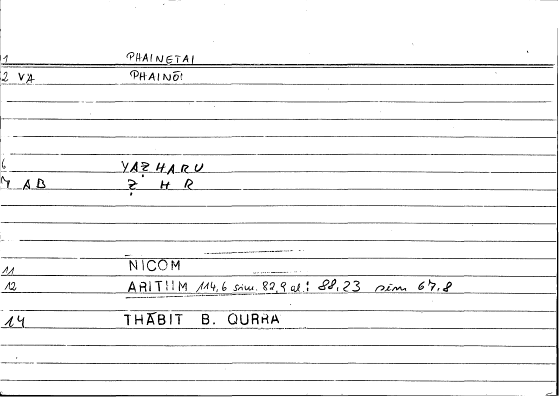 1 PHAINETAI
2 VA PHAINŌ
6 YAẒHARU
7 AB Ẓ H R
11 NICOM
12 ARITHM 114,6 sim. 82,9 al.: 88,23 sim 67,8
14 THĀBIT B. QURRA